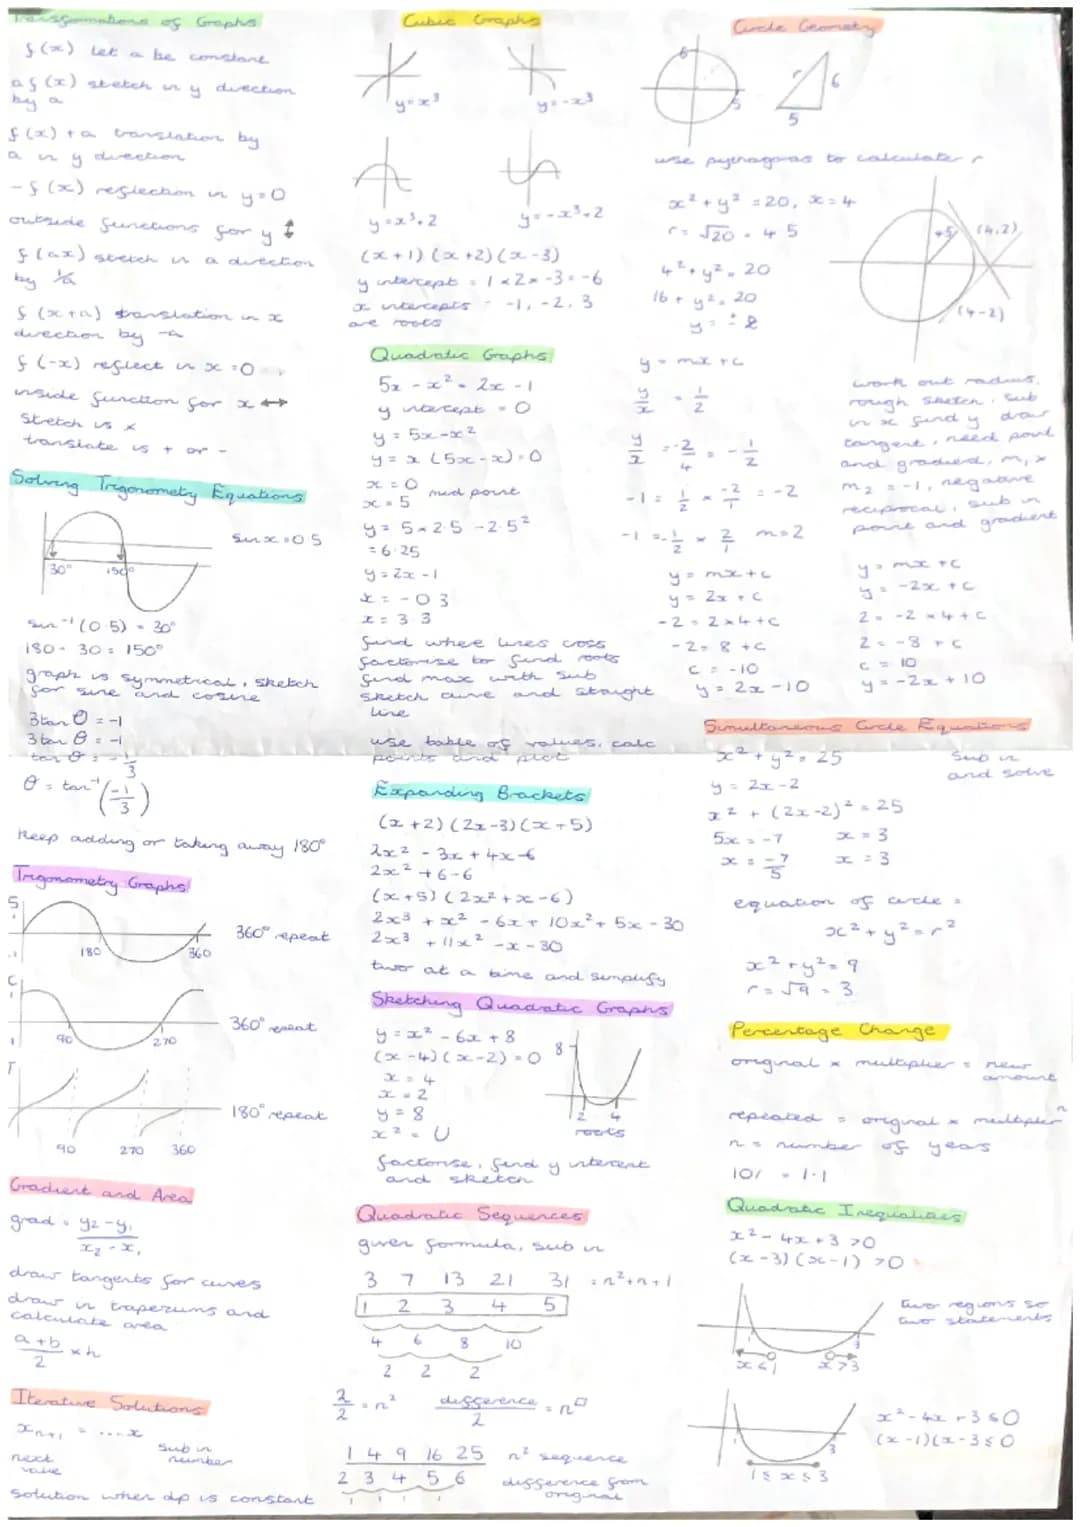 Transformations of Graphs
f(x) let a be constant
af(x) stretch in y direction
by a
f(x) + a translation by
a in y direction
-f(x) reflection in y=0
outside functions for y ↕
f(ax) stretch in a direction
by 1/a
f(x+a) translation in x
direction by -a
f(-x) reflect in x=0
inside function for x ↔
stretch is x
translate is + or -
Solving Trigonometry Equations
sin x = 0.5
30° 150°
sin⁻¹(0.5) = 30°
180 - 30 = 150°
graph is symmetrical, sketch
for sine and cosine
3tan θ = -1
3tan θ = -1
tan θ = -1/3
θ = tan⁻¹(-1/3)
Keep adding or taking away 180°
Trigonometry Graphs
S
180 360
360° repeat
C
90 270
360° repeat
T
90 270 360
180° repeat
Gradient and Area
grad = y₂-y₁ / x₂-x₁
draw tangents for curves
draw in trapeziums and
calculate area
a+b/2 × h
Iterative Solutions
xₙ₊₁ = ...x
next
value
sub in
number
solution when dp is constant
Cubic Graphs
y=x³ y=-x³
y=x³+2 y=-x³+2
(x+1)(x+2)(x-3)
y intercept = 1×2×-3=-6
x intercepts = -1, -2, 3
are roots
Quadratic Graphs
5x - x² = 2x - 1
y intercept = 0
y = 5x-x²
y = x(5x-x)=0
x = 0
x = 5 mid point
y = 5×2.5 - 2.5²
= 6.25
y = 2x - 1
x = -0.3
x = 3.3
find where lines cross
factorise for find roots
find max with sub
sketch curve and straight
line
use table of values, calc
points and plot
Expanding Brackets
(x+2)(2x-3)(x+5)
2x² - 3x + 4x - 6
2x² + 6 - 6
(x+5)(2x²+x-6)
2x³ + x² - 6x + 10x² + 5x - 30
2x³ + 11x² - x - 30
two at a time and simplify
Sketching Quadratic Graphs
y = x² - 6x + 8
(x-4)(x-2) = 0
x = 4
x = 2
y = 8
x² = U
8
2 4
roots
factorise, find y intercept
and sketch
Quadratic Sequences
given formula, sub in
3 7 13 21 31 = n²+n+1
1 2 3 4 5
4 6 8 10
2 2 2
2/2 = n² difference/2 = n□
1 4 9 16 25 n² sequence
2 3 4 5 6 difference from
original
1 1 1 1
Circle Geometry
6 5
r 6
5
use pythagoras to calculate r
x² + y² = 20, x = 4
r = √20 = 4.5
4² + y² = 20
16 + y² = 20
y = ± 2
4.5 (4,2)
(4-2)
y = mx + c
y/x = 1/2
y/x = -2/4 = -1/2
-1 = 1/2 × -2/1 = -2
-1 = -1/2 × 2/1 m=2
y = mx + c
y = 2x + c
-2 = 2×4+c
-2 = 8 + c
c = -10
y = 2x - 10
work out radius,
rough sketch, sub
in x find y draw
tangent, need point
and gradient, m₁ ×
m₂ = -1, negative
reciprocal, sub in
point and gradient
y = mx + c
y = -2x + c
2 = -2×4+c
2 = -8 + c
c = 10
y = -2x + 10
Simultaneous Circle Equations
x² + y² = 25
sub in
and solve
y = 2x - 2
x² + (2x-2)² = 25
5x = -7 x = 3
x = -7/5 x = 3
equation of circle =
x² + y² = r²
x² + y² = 9
r = √9 = 3
Percentage Change
original × multiplier = new
amount
repeated = original × multiplierⁿ
n = number of years
10% = 1.1
Quadratic Inequalities
x² - 4x + 3 > 0
(x-3)(x-1) > 0
two regions so
two statements
1 3
x<1 x>3
x² - 4x + 3 ≤ 0
(x-1)(x-3 ≤ 0
1 3
1 ≤ x ≤ 3